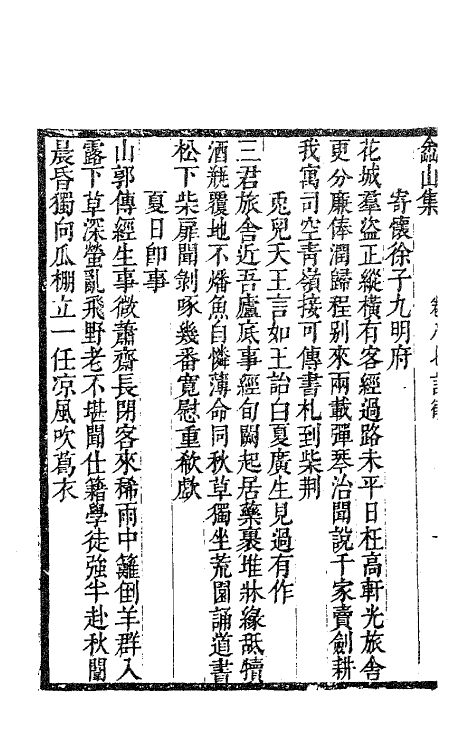 嵞山集
寄懷徐子九明府
花城羣盜正縱橫有客經過路未平日枉高軒光旅舍
更分廉俸潤歸程别來兩載彈琴治聞說千家賣劍耕
我寓司空青嶺接可傳書札到柴荆
兎兒天王言如王詒白夏廣生見過有作
三君旅舍近吾廬底事經旬闕起居藥裹堆牀緣舐犢
酒瓶覆地不燔魚自憐薄命同秋草獨坐荒園誦道書
松下柴扉聞剝啄幾番寛慰重欷歔
夏日卽事
山郭傳經生事微蕭齋長閉客來稀雨中籬倒羊群入
露下草深螢亂飛野老不堪聞仕籍學徒強半赴秋闈
晨昏獨向瓜棚立一任凉風吹葛衣